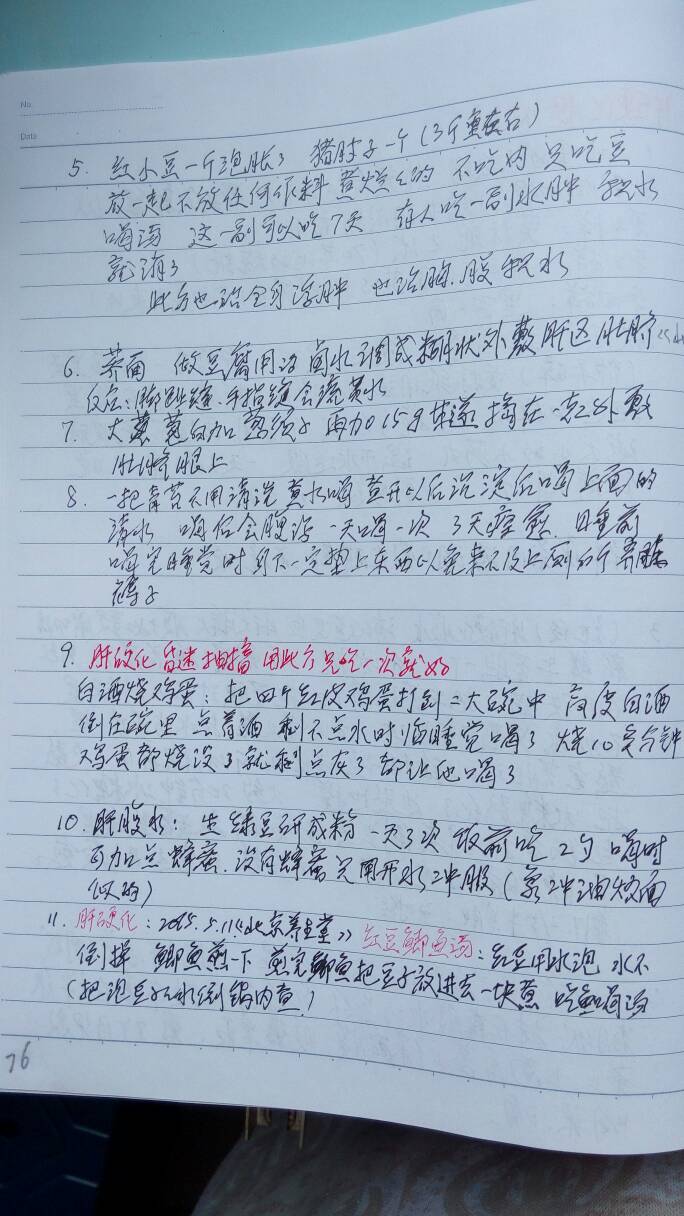 No.
Date
5. 红小豆一斤泡胀了 猪肘子一个(3斤重左右)
放一起不放任何作料 煮烂的 不吃肉 只吃豆
喝汤 这一副可以吃7天 有人吃一副水肿 积水
就消了
此方也治全身浮肿 也治胸.腹积水
6. 荞面 做豆腐用的卤水调成糊状外敷肝区肚脐
反应:脚趾缝.手指缝会流黄水
7. 大葱葱白加葱须子 再加0.15g甘遂 捣在一起外敷
肚脐眼上
8. 一把青苔不用清洗 煮水喝 煮开以后沉淀后喝上面的
清水 喝后会腹泻 一天喝一次 3天痊愈 睡前
喝完睡觉时身下一定垫上东西以免来不及上厕所弄脏
裤子
9. 肝硬化昏迷抽搐 用此方只吃一次就好
白酒烧鸡蛋:把四个红皮鸡蛋打到二大碗中 高度白酒
倒在碗里 点着酒 剩不点水时临睡觉喝了 烧10多分钟
鸡蛋都烧没了就剩点灰了 都让他喝了
10. 肝腹水: 生绿豆研成粉 一天3次 饭前吃2勺 喝时
可加点蜂蜜.没有蜂蜜只用开水冲服(象冲油炒面
似的)
11. 肝硬化:2015.5.11《北京养生堂》红豆鲫鱼汤:红豆用水泡 水不
倒掉 鲫鱼煎一下 煎完鲫鱼把豆子放进去一块煮 吃鱼喝汤
(把泡豆子的水倒锅内煮!)
76